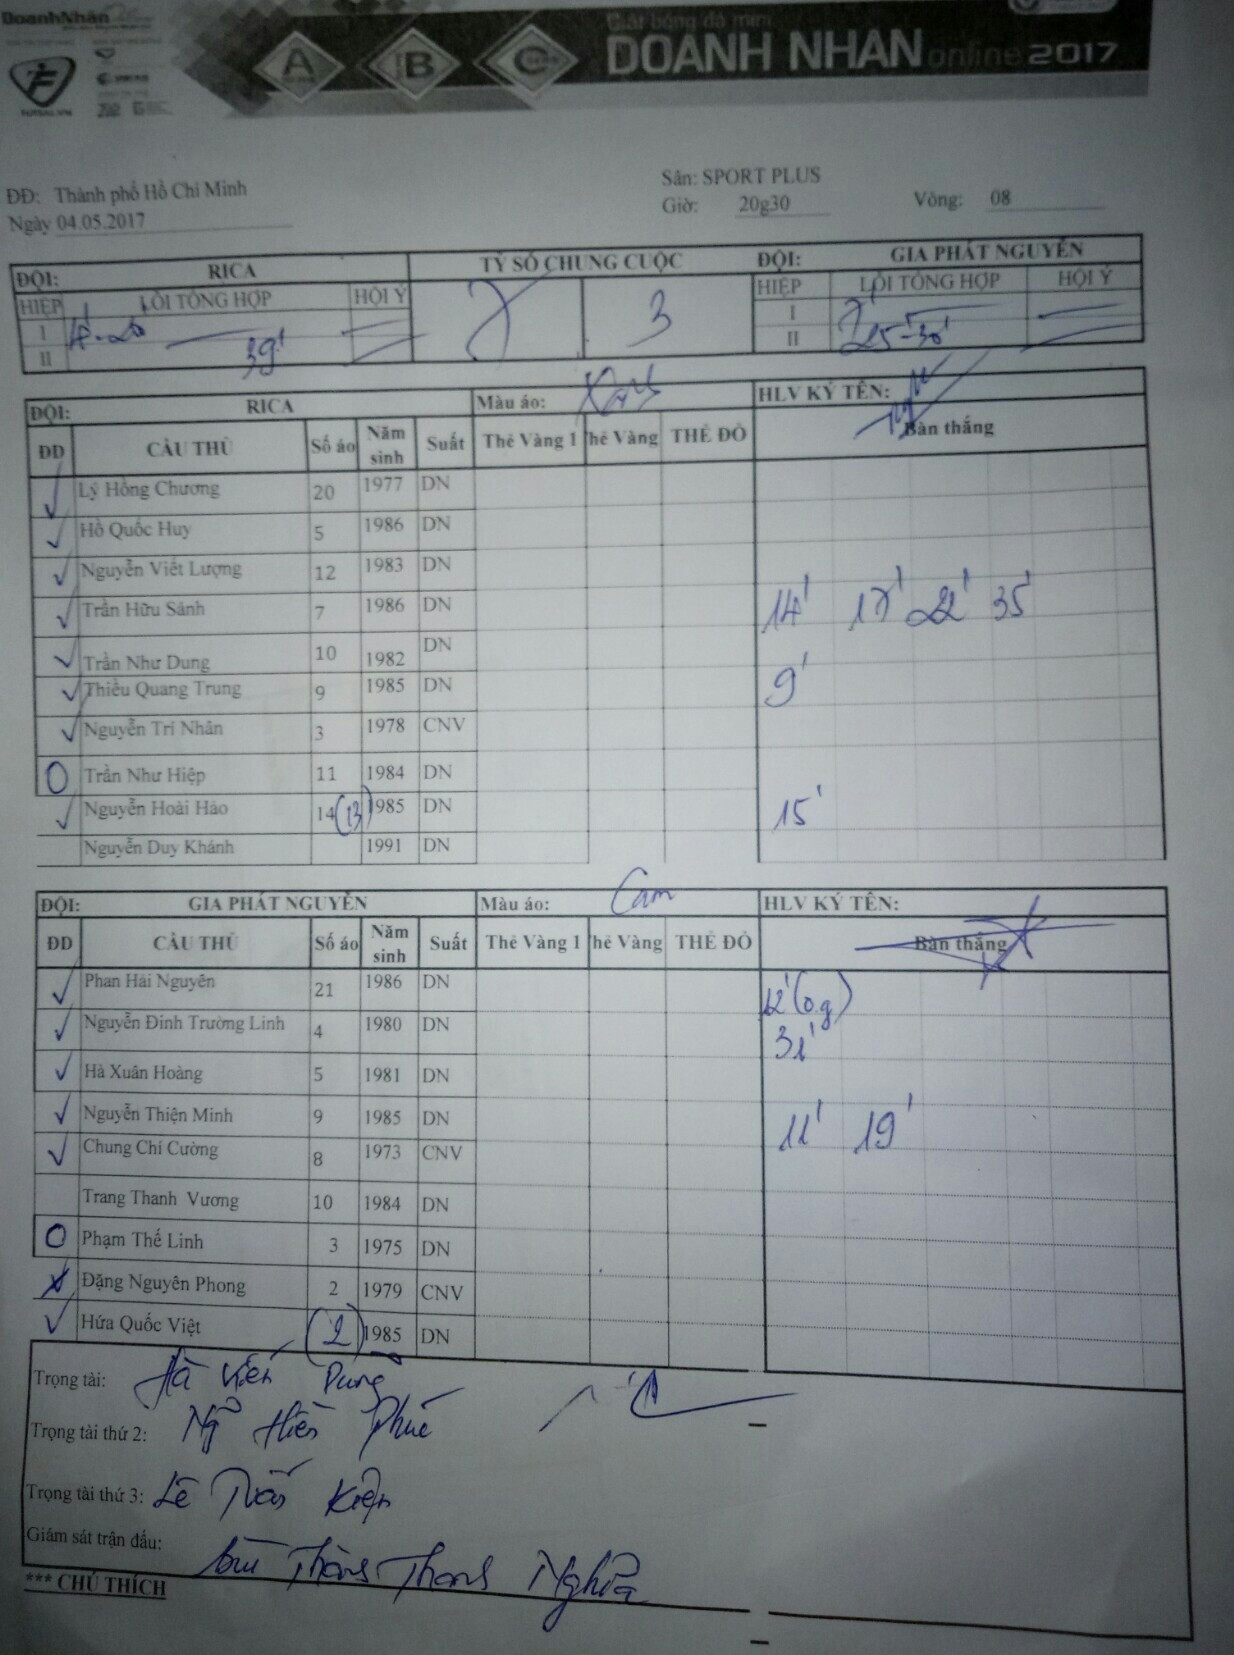 DoanhNhân
Giải bóng đá mini
A B C DOANH NHAN online 2017
FUTSAL.VN
ĐĐ: Thành phố Hồ Chí Minh
Sân: SPORT PLUS
Ngày 04.05.2017
Giờ: 20g30 Vòng: 08
ĐỘI: RICA TỶ SỐ CHUNG CUỘC ĐỘI: GIA PHÁT NGUYỄN
HIỆP LỖI TỔNG HỢP HỘI Ý 7 3 HIỆP LỖI TỔNG HỢP HỘI Ý
I I 7'
II 39' II 25'-30'
ĐỘI: RICA Màu áo: Xanh HLV KÝ TÊN:
ĐD CẦU THỦ Số áo Năm sinh Suất Thẻ Vàng 1 Thẻ Vàng THẺ ĐỎ Bàn thắng
Lý Hồng Chương 20 1977 DN
Hồ Quốc Huy 5 1986 DN
Nguyễn Viết Lượng 12 1983 DN
Trần Hữu Sánh 7 1986 DN 14' 17' 22' 35'
Trần Như Dung 10 1982 DN
Thiều Quang Trung 9 1985 DN 9'
Nguyễn Trí Nhân 3 1978 CNV
O Trần Như Hiệp 11 1984 DN
Nguyễn Hoài Hảo 14 (13) 1985 DN 15'
Nguyễn Duy Khánh 1991 DN
ĐỘI: GIA PHÁT NGUYỄN Màu áo: Cam HLV KÝ TÊN:
ĐD CẦU THỦ Số áo Năm sinh Suất Thẻ Vàng 1 Thẻ Vàng THẺ ĐỎ Bàn thắng
Phan Hải Nguyên 21 1986 DN 12' (o.g)
Nguyễn Đình Trường Linh 4 1980 DN 31'
Hà Xuân Hoàng 5 1981 DN
Nguyễn Thiện Minh 9 1985 DN 11' 19'
Chung Chí Cường 8 1973 CNV
Trang Thanh Vương 10 1984 DN
O Phạm Thế Linh 3 1975 DN
Đặng Nguyên Phong 2 1979 CNV
Hứa Quốc Việt (2) 1985 DN
Trọng tài: Hà Viến Dung
Trọng tài thứ 2: Ng Hiền Phúc
Trọng tài thứ 3: Lê Tuấn Kiện
Giám sát trận đấu: Bùi Thành Nghĩa
*** CHÚ THÍCH